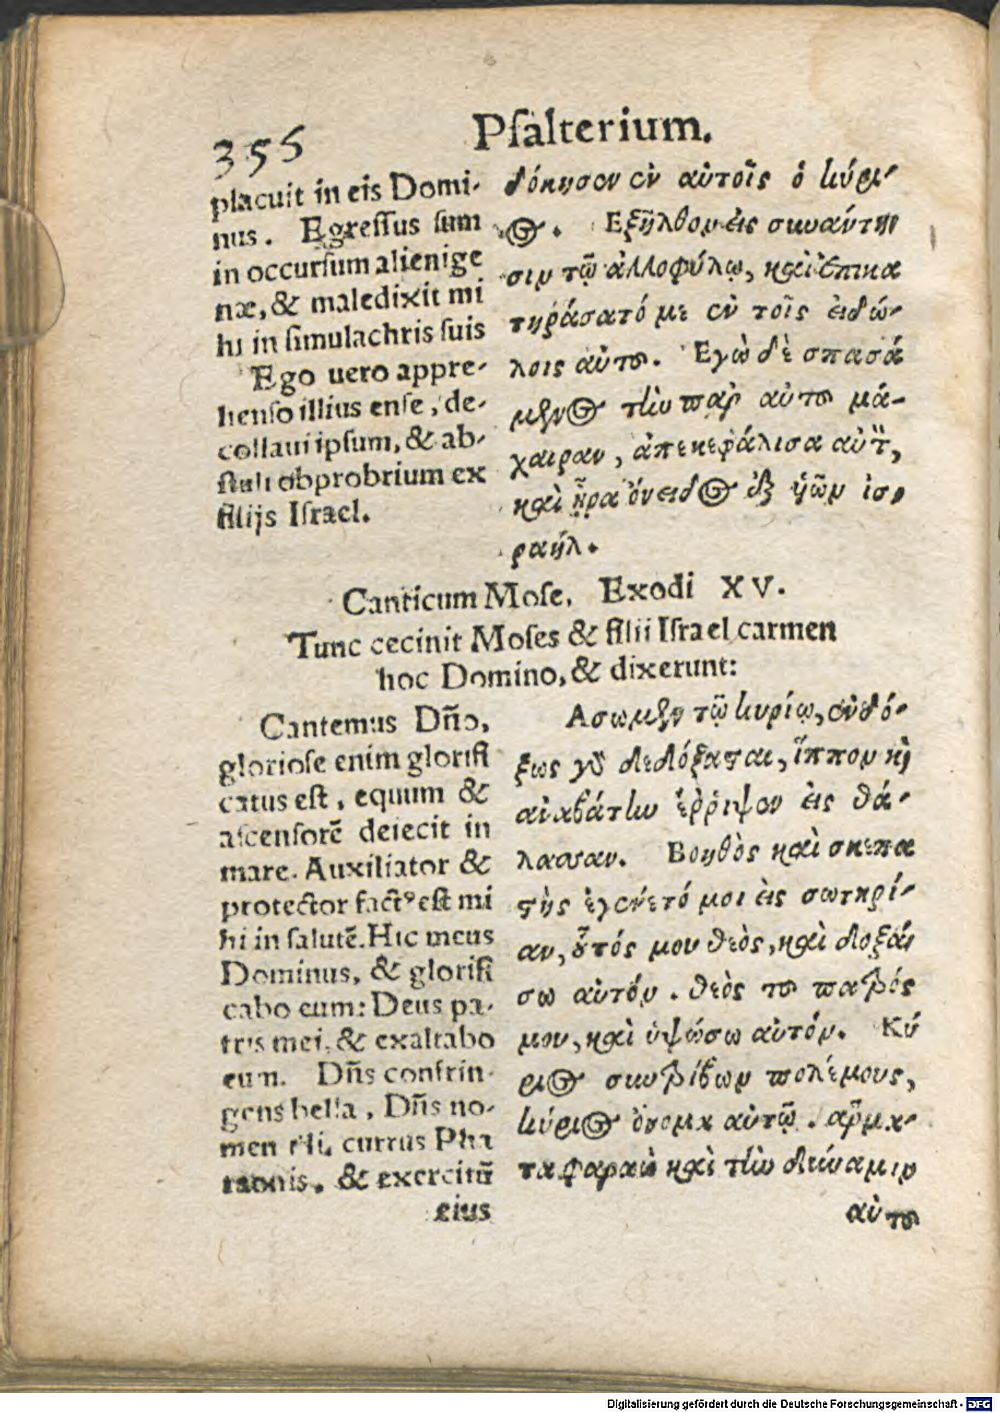 356
Psalterium.
placuit in eis Domi-
nus. Egressus sum
in occursum alienige
næ, & maledixit mi
hi in simulachris suis
Ego uero appre-
henso illius ense, de-
collaui ipsum, & ab-
stuli obprobrium ex
filijs Israel.
δόκησεν ἐν αὐτοῖς ὁ κύρι-
ος. Εξῆλθον εἰς συνάντη
σιν τῷ ἀλλοφύλῳ, καὶ ἐπικα
τηράσατό με ἐν τοῖς εἰδώ-
λοις αὐτοῦ. Εγὼ δὲ σπασά
μενος τὴν παρ αὐτοῦ μά-
χαιραν, ἀπεκεφάλισα αὐτὸν,
καὶ ἦρα ὄνειδος ἐξ ὑῶν ἰσ-
ραήλ.
Canticum Mose. Exodi XV.
Tunc cecinit Moses & filii Israel carmen
hoc Domino, & dixerunt:
Cantemus Dño,
gloriose enim glorifi
catus est, equum &
ascensorẽ deiecit in
mare. Auxiliator &
protector factꝰ est mi
hi in salutẽ. Hic meus
Dominus, & glorifi
cabo eum: Deus pa-
tris mei, & exaltabo
eum. Dñs confrin-
gens bella, Dñs no-
men illi, currus Pha
raonis, & exercitũ
eius
Ασωμεν τῷ κυρίῳ, ἐνδό-
ξως γὰρ δεδόξασαι, ἵππον καὶ
ἀναβάτην ἔρριψεν εἰς θά-
λασσαν. Βοηθὸς καὶ σκεπα
στὴς ἐγένετό μοι εἰς σωτηρί-
αν, οὗτός μου θεὸς, καὶ δοξά-
σω αὐτόν. θεὸς τοῦ πατρός
μου, καὶ ὑψώσω αὐτόν. Κύ
ριος συντρίβων πολέμους,
κύριος ὄνομα αὐτῷ. ἅρμα-
τα φαραὼ καὶ τὴν δύναμιν
αὐτοῦ
Digitalisierung gefördert durch die Deutsche Forschungsgemeinschaft - DFG